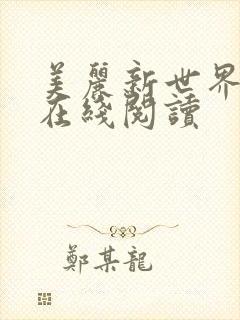 美麗新世界
在綫閱讀
鄭某龍